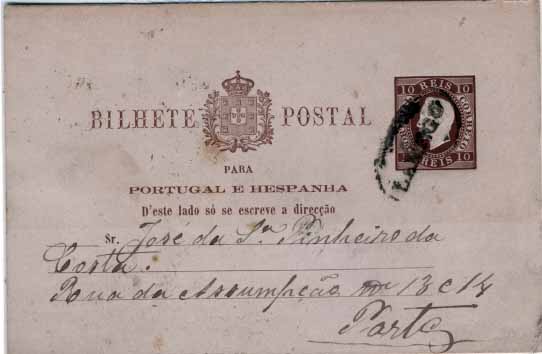 10 REIS 10
CORREIO
10 REIS 10
LAMEGO
BILHETE POSTAL
PARA
PORTUGAL E HESPANHA
D'este lado só se escreve a direcção
Sr. José da Sª Pinheiro da
Costa.
Rua da Assumpção 13 e 14
Porto